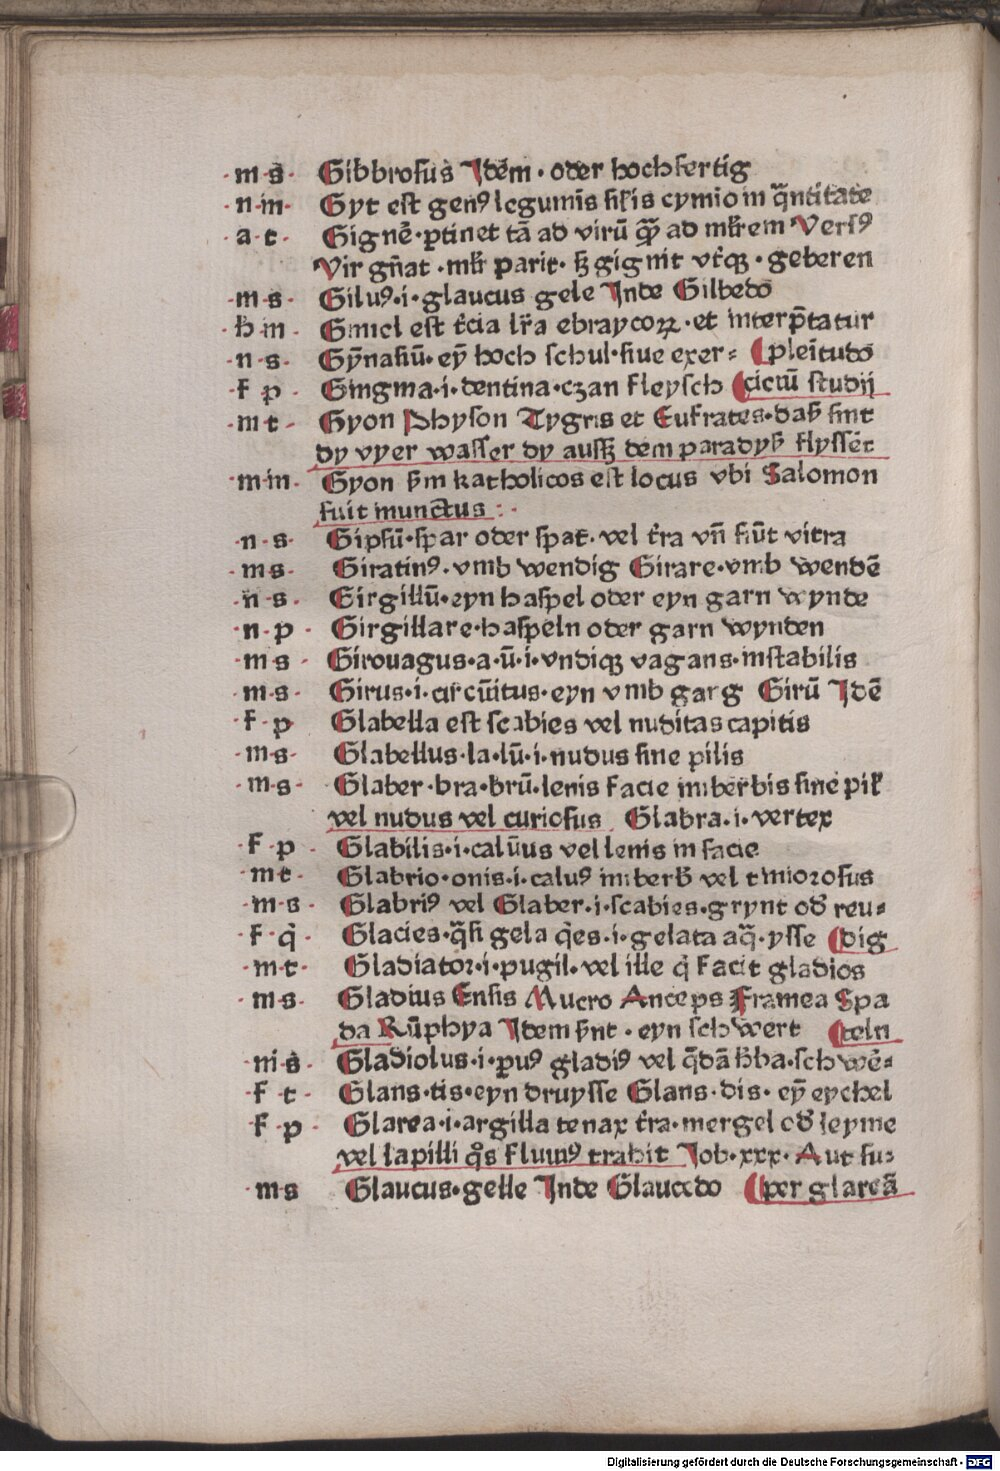 ·m·s· Gibbrosus Idem̄· oder hochfertig
·n·m· Gyt est genꝰ leguminis similis cymio in q̄ntitate
·a·c· Gignē·ꝑtinet tā ad virū ꝙ̄ ad mr̄em Versꝰ
Vir gn̄at ·mr̄ parit· sꝫ gignit vtꝛqꝫ ·geberen
·m·s· Gilꝰ·i·glaucus gele Inde Gilbedo
·h·m· Gimel est t̄cia lr̄a ebraycoꝝ·et interp̄tatur
·n·s· Gȳnasiū· eȳ hoch schul·siue exer= ⸿plenitudo
·f·p· Gingma·i·dentina·czan fleysch ⸿cicitū studij
·m·t· Gyon Physon Tygris et Eufrates·daß sint
dy vyer wasser dy aussꝫ dem paradyß flyssēt
·m·m· Gyon ẜm katholicos est locus vbi Salomon
fuit munctus :·
·n·s· Gipsū·spar oder spat· vel t̄ra vn̄ siūt vitra
·m·s· Giratinꝰ·vmb wendig Girare·vmb wendē
·n·s· Girgillū·eyn haspel oder eyn garn wynde
·n·p· Girgillare·haspeln oder garn wynden
·m·s· Girouagus·a·ū·i·vndiqꝫ vagans·instabilis
·m·s· Girus·i·circūitus·eyn vmb garg Girū Idē
·f·p· Glabella est scabies vel nuditas capitis
·m·s· Glabellus·la·lū·i·nudus sine pilis
·m·s· Glaber·bra·brū·lenis facie imberbis sine pil̄
vel nudus vel curiosus Glabra·i·vertex
·f·p· Glabilis·i·caluus vel lenis in facie
·m·t· Glabrio·onis·i·caluꝰ imberb̄ vel
·m·s· Glabriꝰ vel Glaber·i·scabies·grynt od̄ reu=
·f·q· Glacies·q̄si gela q̄es·i·gelata aq̄·ysse ⸿dig
·m·t· Gladiator·i·pugil·vel ille q̇ facit gladios
·m·s· Gladius Ensis Mucro Anceps Framea Spa
da Rūphya Idem ẜnt ·eyn schwert ⸿teln
·m·s· Gladiolus·i·ꝑuꝰ gladiꝰ vel q̄dā h̄ba·schwē=
·f·t· Glans·tis·eyn druysse Glans·dis· eȳ eychel
·f·p· Glarea·i·argilla tenax t̄ra·mergel od̄ leyme
vel lapilli q̊s fluuiꝰ trahit Job·xxx·Aut su=
·m·s Glaucus·gelle Inde Glaucedo ⸿per glareā
Digitalisierung gefördert durch die Deutsche Forschungsgemeinschaft - DFG